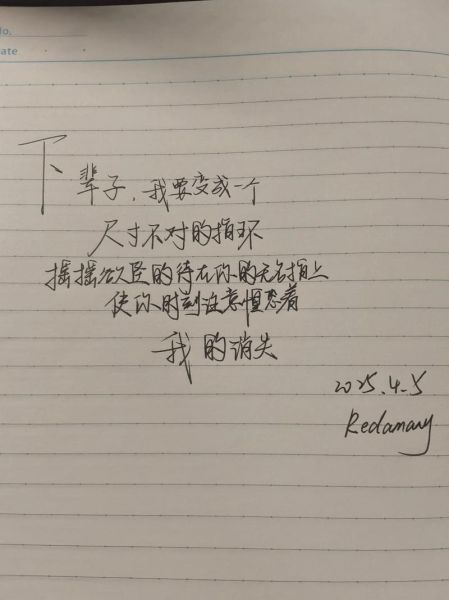 No.
ate
下辈子，我要变成一个
尺寸不对的指环
摇摇欲坠的待在你的无名指上
使你时刻注意惶恐着
我的消失
2025.4.5
Redamancy